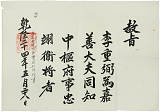 敎旨
李重爲嘉
善大夫同知
中樞府事忠
翊衛將者
乾隆十四年五月日